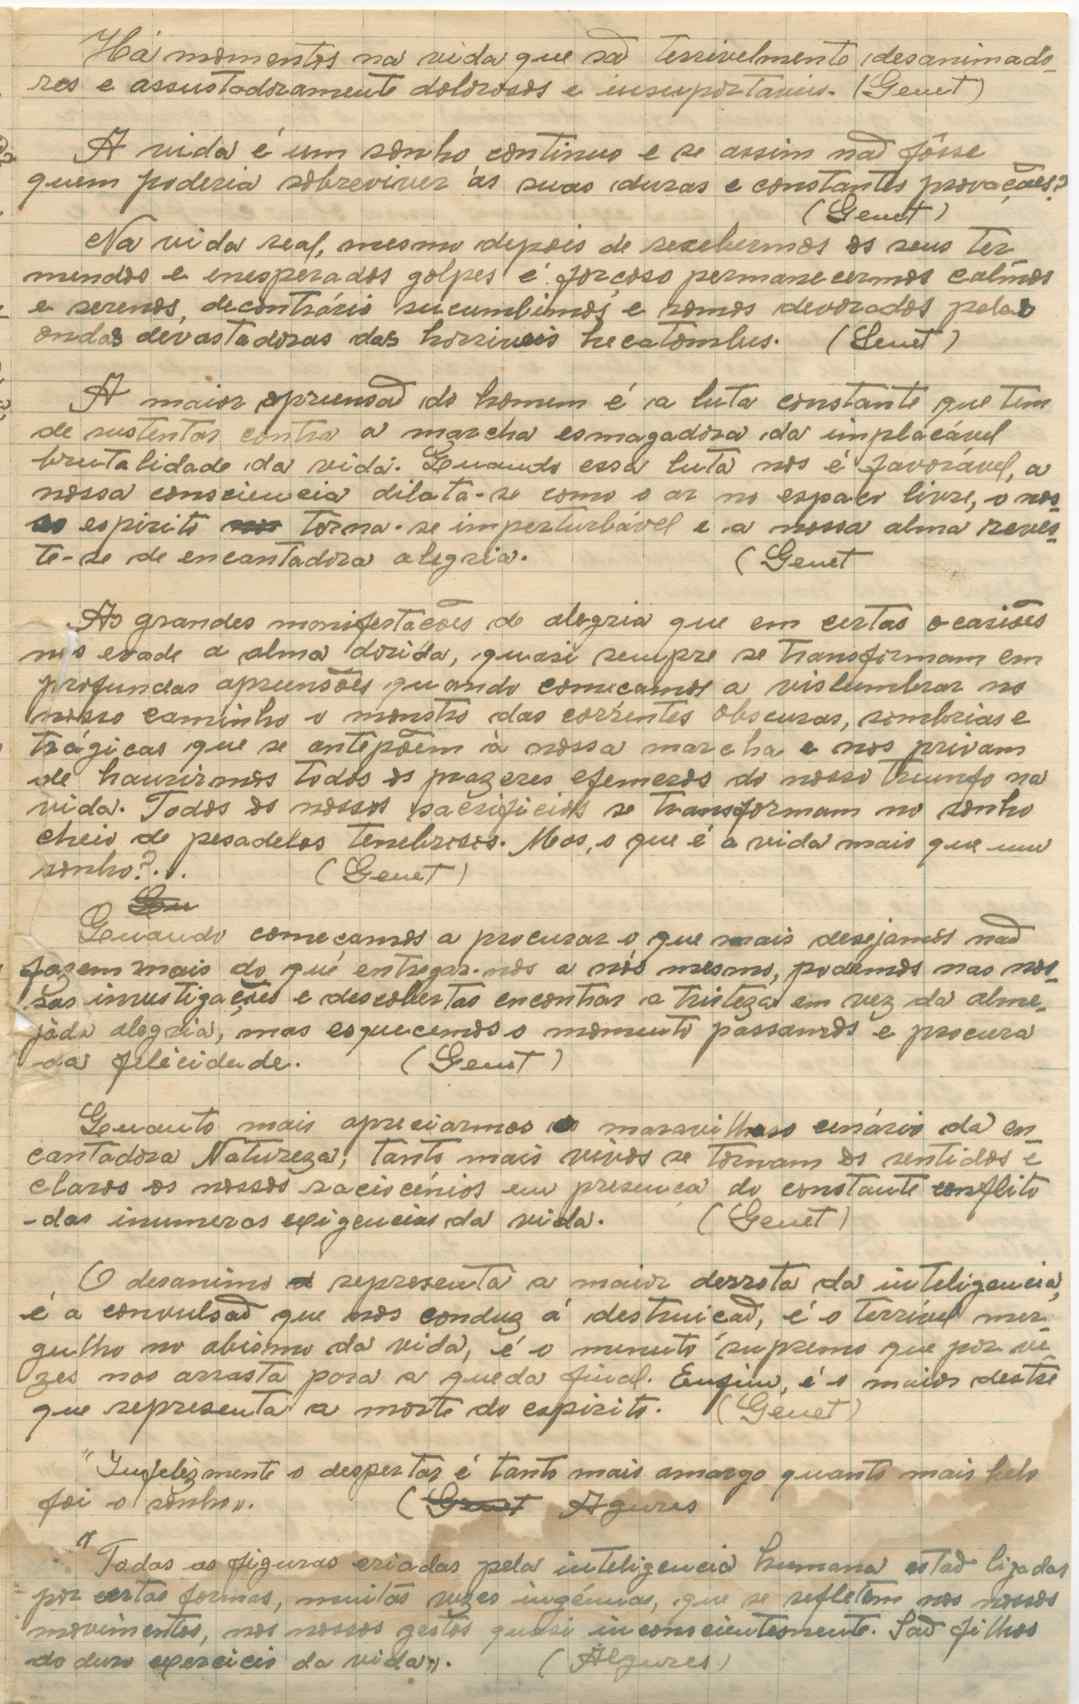 Há momentos na vida que são terrivelmente desanimado-
res e assustadoramente dolorosos e insuportaveis. (Genet)
A vida é um sonho continuo e se assim não fôsse
quem poderia sobreviver ás suas duras e constantes provações?
(Genet)
Na vida real, mesmo depois de recebermos os seus tre
mendos e inesperados golpes é forçoso permanecermos calmos
e serenos, decontrário sucumbimos e somos devorados pelas
ondas devastadoras das horriveis hecatombes. (Genet)
A maior apreensão do homem é a luta constante que tem
de sustentar contra a marcha esmagadora da implacável
brutalidade da vida. Quando essa luta nos é favorável, a
nossa consciencia dilata-se como o ar no espaço livre, o nos-
so espirito torna-se imperturbável e a nossa alma reves-
te-se de encantadora alegria. (Genet
As grandes manifestações de alegria que em certas ocasiões
nos evade a alma dorida, quasi sempre se transformam em
profundas apreensões quando começamos a vislumbrar no
nosso caminho o monstro das correntes obscuras, sombrias e
trágicas que se antepõem à nossa marcha e nos privam
de haurirmos todos os prazeres efemeros do nosso triunfo na
vida. Todos os nossos sacrificios se transformam no sonho
cheio de pesadelos tenebrosos. Mas, o que é a vida mais que um
sonho?... (Genet)
Quando começamos a procurar o que mais desejamos não
fazem mais do quê entregar-nos a nós mesmo, podemos nas nos-
sas investigações e descobertas encontrar a tristeza em vez da alme-
jada alegria, mas esquecemos o momento passamos e procura
-da felicidade. (Genet)
Quanto mais apreciarmos o maravilhoso cenário da en
cantadora Natureza, tanto mais vivos se tornam os sentidos e
claros os nossos raciocénios em presença do constante conflito
-das inumeras exigencias da vida. (Genet)
O desanimo representa a maior derrota da inteligencia,
é a convulsão que nos conduz á destruição, é o terrivel mer-
gulho no abismo da vida, é o minuto supremo que por ve
zes nos arrasta para a queda final. Enfim, é o maior destre
que representa a morte do espirito. (Genet)
"Infelizmente o despertar é tanto mais amargo quanto mais belo
foi o sonho". ( Agures
"Todas as figuras criadas pela inteligencia humana estão ligadas
por certas formas, muitas vezes ingénuas, que se refletem nos nossos
movimentos, nos nossos gestos quasi inconscientemente. São filhos
do duro exercicio da vida". (Algures)